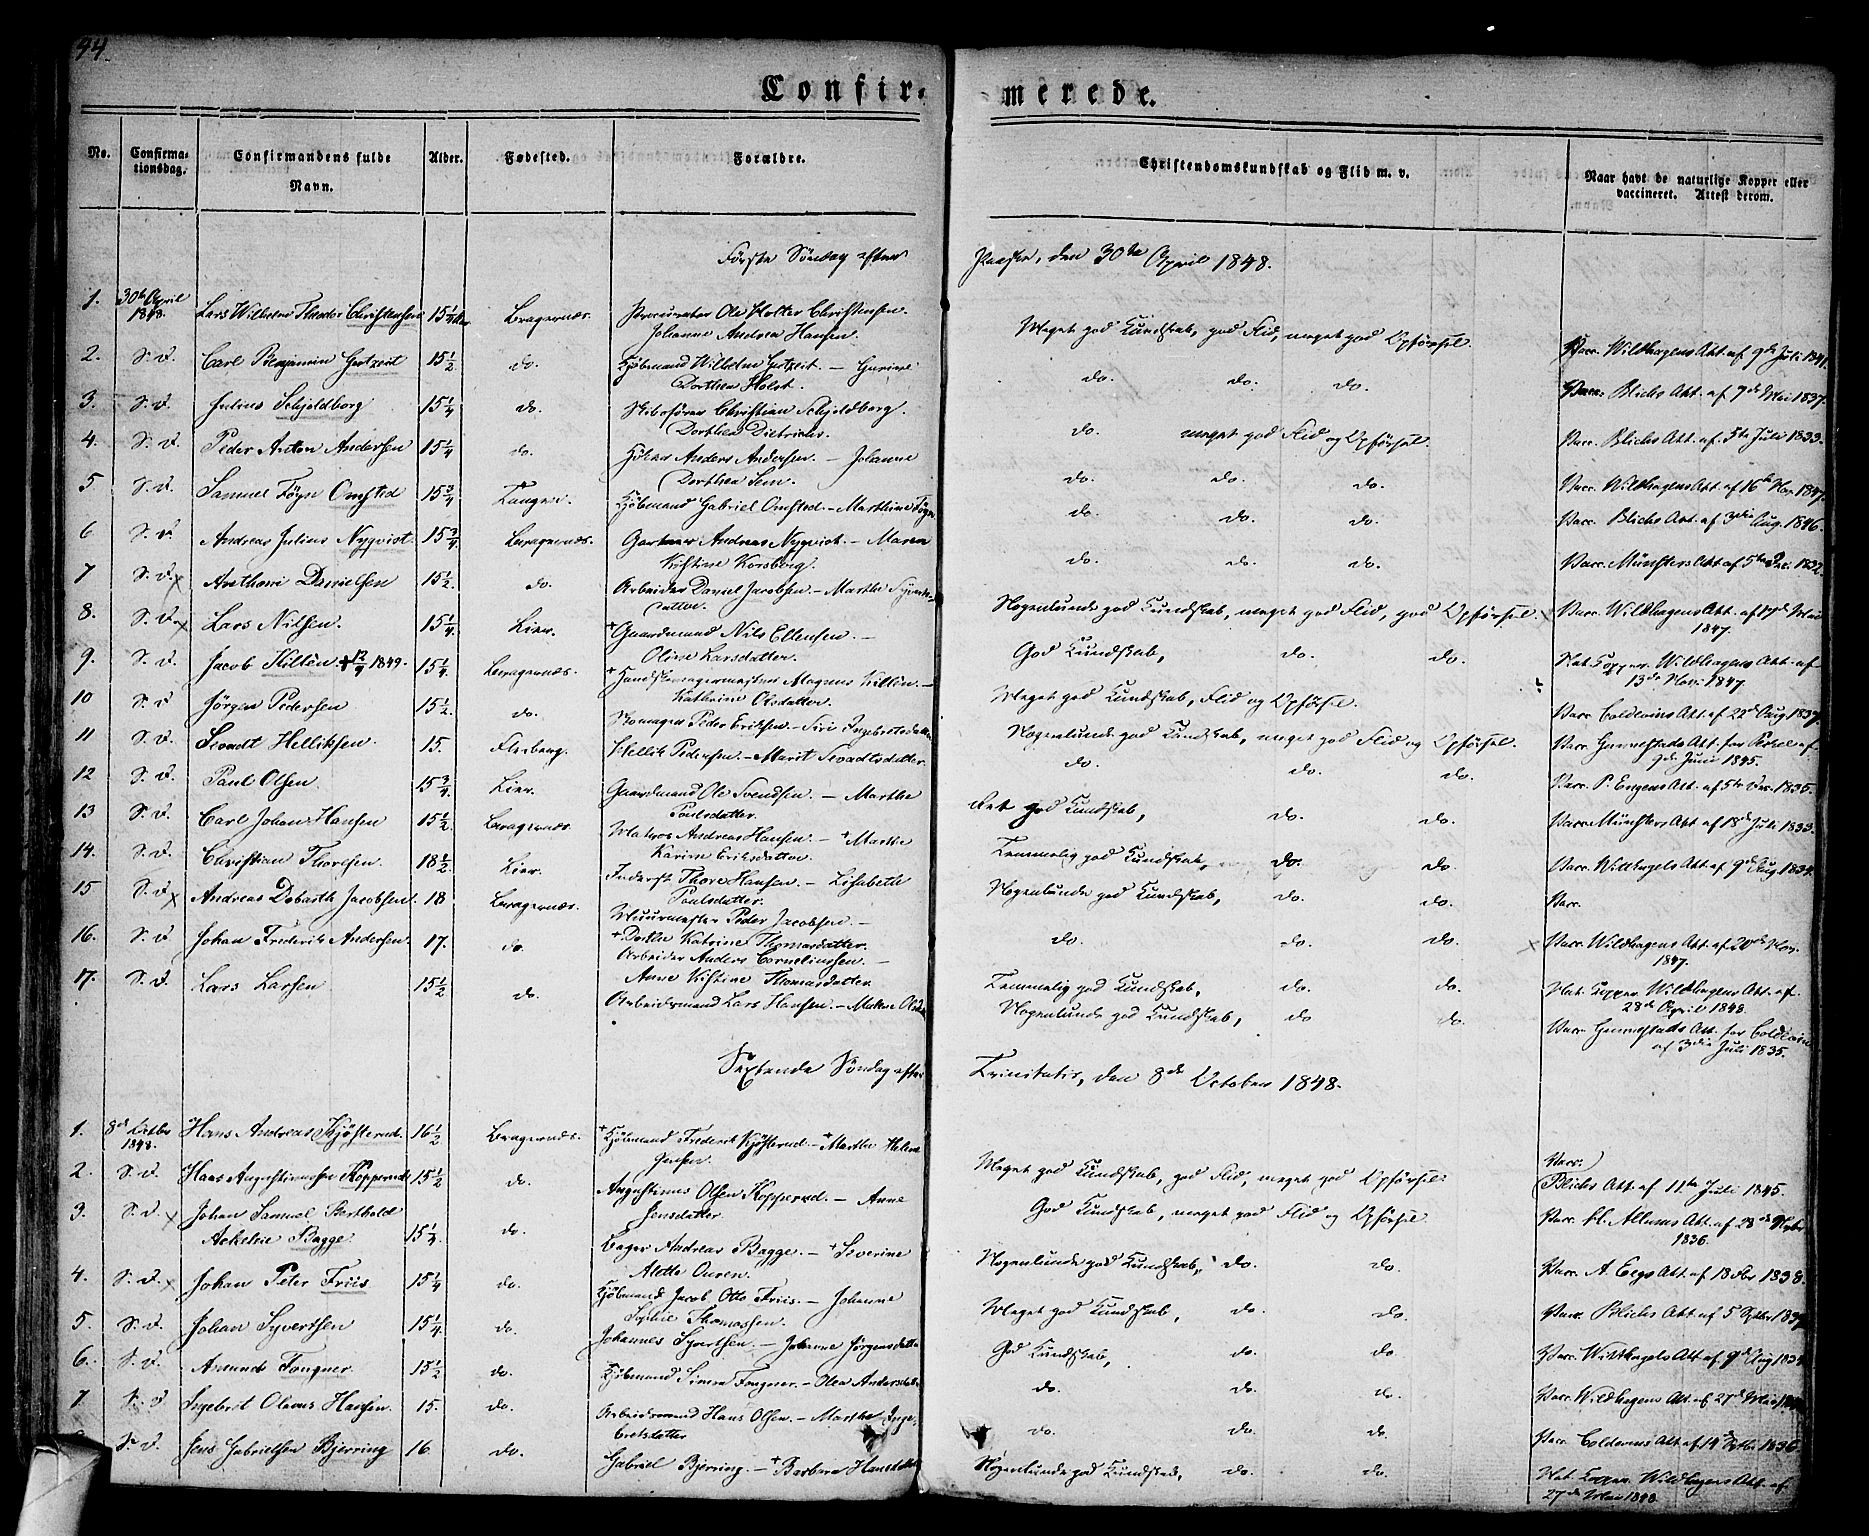 44.
Confir-
merede.
No.
Confirma-
tionsdag.
Confirmandens fulde
Navn.
Alder.
Fødested.
Forældre.
Christendomskundskab og Flid m. v.
Naar havt de naturlige Kopper eller
vaccineret. Attest derom.
Første Søndag efter Paaske, den 30te April 1848.
1. 30te April 1848. Lars Wilhelm Theodor Christensen 15 1/4 Bragernæs. Procurator Ole Holter Christensen.
Johanne Andrea Hansen. Meget god Kundskab, god Flid, meget god Opførsel. Vacc. Wildhagens Att. af 9de Juli 1841.
2. S. D. Carl Benjamin Gutzeit 15 1/2 do. Kjøbmand Wilhelm Gutzeit. – Gurine
Dorthea Holst. do. do. do. Vacc. Blichs Att. af 7de Mai 1837.
3. S. D. Julius Schjeldborg 15 1/4 do. Skibsfører Christian Schjeldborg.
Dorthea Dietrichs. do. meget god Flid og Opførsel. Vacc. Blichs Att. af 5te Juli 1833.
4. S. D. Peder Anton Andersen 15 1/4 do. Anders Andersen. – Johanne
Dorthea Sem. do. do. do. Vacc. Wildhagens Att. af 16de Nov. 1847.
5 S. D. Samuel Føyn Omsted 15 3/4 Tangen. Kjøbmand Gabriel Omsted. – Marthine Føyn. do. do. do. Vacc. Blichs Att. af 3die Aug. 1846.
6 S. D. Andreas Julius Nyqvist. 15 3/4. Bragernæs. Gartner Andreas Nyqvist. – Maren
Kistine Korsborg. do. do. do. Vacc. Münsters Att. af 5te Dec. 1832.
7 S. D. x Anthoni Danielsen 15 1/2. do. Arbeider Daniel Jacobsen. – Marthe Syverts-
datter. Nogenlunde god Kundskab, meget god Flid, god Opførsel. x Vacc. Wildhagens Att. af 17de Mai
1847.
8. S. D. x Lars Nilsen. 15 1/4. Lier. + Gaardmand Nils Ellensen. –
Oline Larsdatter. God Kundskab, do. do. Nat. Copper. Wildhagens Att. af
13de Nov. 1847.
9. S. D. Jacob Killén. + 12/9 1849. 15 1/4. Bragernæs. + Handskemagermester Magnus Killén. –
Kathrine Olsdatter. Meget god Kundskab, Flid og Opførsel. Vacc. Coldevins Att. af 22de Aug. 1837.
10 S. D. Jörgen Pedersen 15 1/2. do. Peder Eriksen. – Siri Ingebretsdatter. Nogenlunde god Kundskab, meget god Flid og Opførsel. Vacc. Gunnestads Att. for
9de Juni 1845.
11 S. D. Svendt Helliksen. 15. Flesberg. Hellik Pedersen. – Marit Sevadtsdatter. do. do. do. Vacc. P. Engens Att. af 5te Dec. 1835.
12 S. D. Paul Olsen 15 3/4. Lier. Gaardmand Ole Svendsen. – Marthe
Poulsdatter. Ret god Kundskab, do. do. Vacc. Münsters Att. af 18de Juli 1833.
13 S. D. Carl Johan Hansen 15 1/2. Bragernæs. Matros Andreas Hansen. – + Marthe
Karine Eriksdatter. Temmelig god Kundskab, do. do. Vacc. Withagels Att. af 9de Aug. 1834.
14. S. D. Christian Thoresen. 18 1/2. Lier. Inderst Thore Hansen. – Lisabeth
Poulsdatter. Nogenlunde god Kundskab, do. do. Vacc.
15 S. D. x Andreas Dobarth Jacobsen. 18 Bragernæs. Muurmester Peder Jacobsen. –
+ Dorthe Katrine Thomasdatter. do. do. do. x Vacc. Wildhagens Att. af 20de Nov.
1847.
16. S. D. Johan Frederik Andersen. 17. do. Arbeider Anders Corneliussen. –
Anne Kistine Thomasdatter. Temmelig god Kundskab, do. do. Nat. Copper. Wildhagens Att. af
28de April 1848.
17. S. D. Lars Larsen 15 1/2 do. Arbeidsmand Lars Hansen. – Nogenlunde god Kundskab, do do. Vacc. Gunnestads Att. for Coldevin
af 3die Juli 1835.
Sextende Søndag efter Trinitatis, den 8de October 1848.
1. 8de Octbr 1848. Hans Andreas Kjøsterud. 16 1/2 Bragernæs. + Kjøbmand Frederik Kjøsterud. – + Marthe Helene
Jensen. Meget god Kundskab, god Flid, meget god Opførsel. Vacc.
Blichs Att. af 11te Juli 1845.
2. S. D. Hans Augustinussen Kopperud 15 1/2 do. Augustinus Olsen Kopperud. – Anne
Jensdatter. God Kundskab, meget god Flid og Opførsel. Vacc. H. Allums Att. af 28de
1836.
3. S. D. x Johan Samuel Berthold
Bagge 15 1/4. do. Bager Andreas Bagge. – + Severine
Alette Ouren. Nogenlunde god Kundskab, do. do. Vacc. A. Eegs Att. af 18 1838.
4. S. D. x Johan Peter Friis 15 1/4 do. Kjøbmand Jacob Otto Friis. – Johanne
Sophie Thomassen. Meget god Kundskab, do. do. Vacc. Blichs Att. af 5 Septbr
5. S. D. Johan Syvertsen 15 1/4 do. Johannes Syvertsen. – Johanne Jörgensdatter God Kundskab, do. do. Vacc. Withagels Att. af 9de Aug. 1834
6. S. D. Amund Fougner. 15 1/2 do. Kjøbmand Simen Fougner. – Olea Andersdatter do. do. do. Vacc. Wildhagens Att. af 27de Mai
7 S. D Ingebret Olaus Hansen. 15. do. Arbeidsmand Hans Olsen. – Marthe Inge-
bretsdatter do. do. do. Vacc. Coldevins Att. af 14de Septbr 1836
S. D. Jens Gabrielsen Bjerring 16. do. Gabriel Bjerring. – + Barbara Hansdatter Nogenlunde god Kundskab, do. do. Nat. Copper. Wildhagens Att. af
27de Mai 1848.